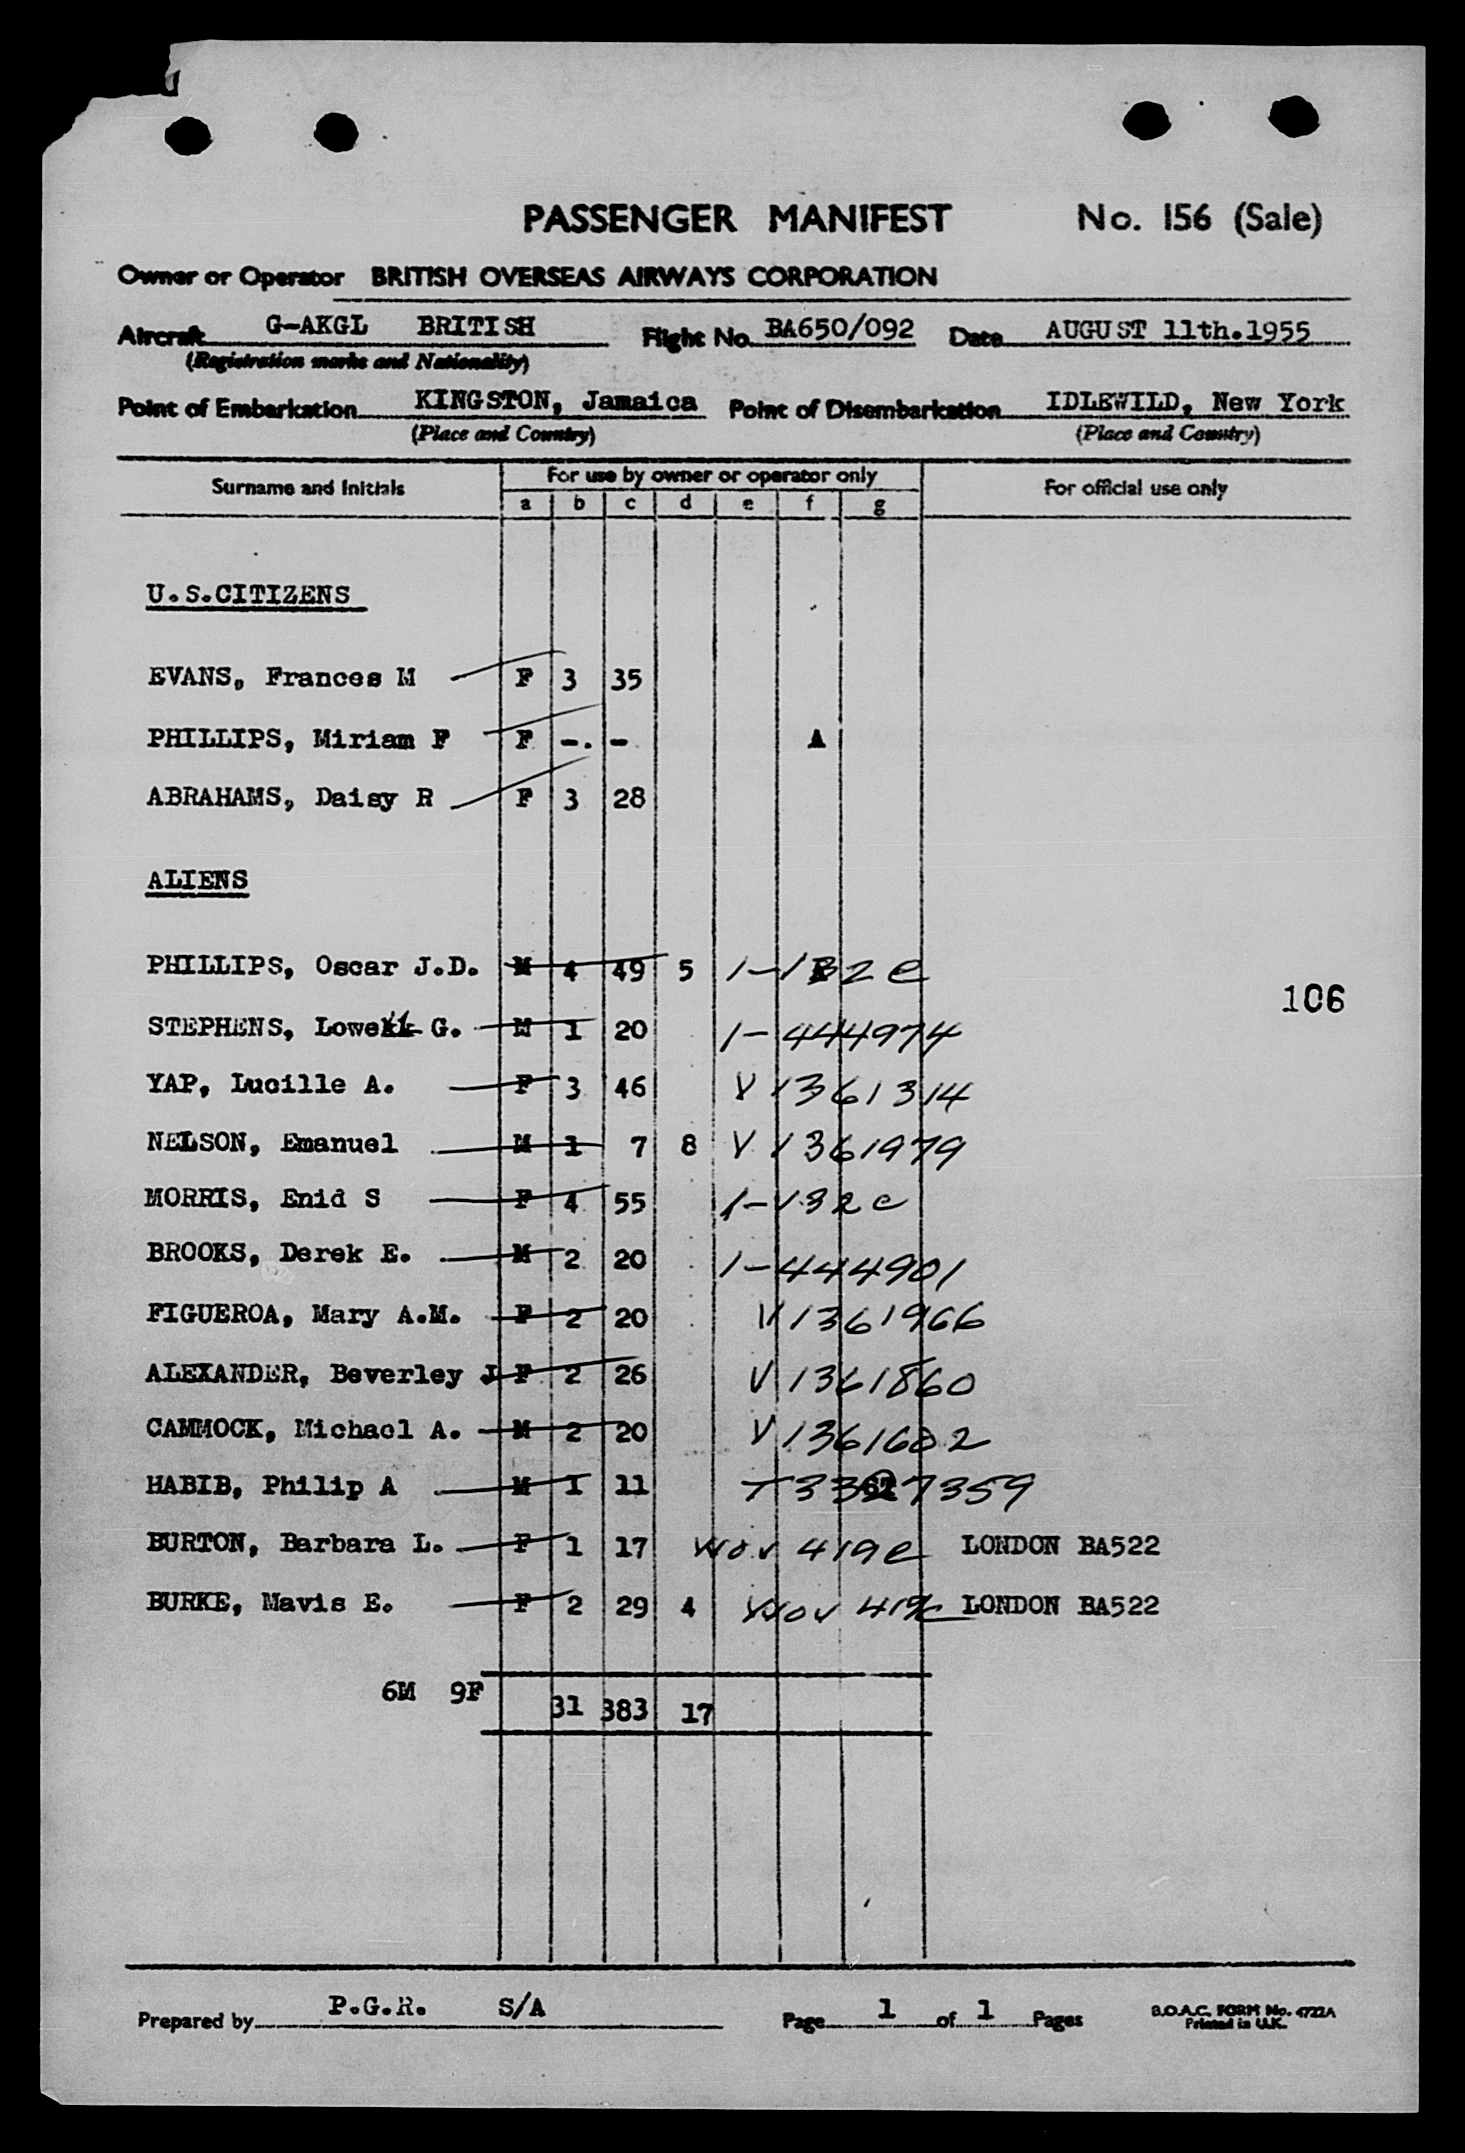 PASSENGER MANIFEST No. 156 (Sale)
Owner or Operator BRITISH OVERSEAS AIRWAYS CORPORATION
Aircraft G-AKGL BRITISH Flight No. BA650/092 Date AUGUST 11th.1955
(Registration marks and Nationality)
Point of Embarkation KINGSTON, Jamaica Point of Disembarkation IDLEWILD, New York
(Place and Country) (Place and Country)
Surname and Initials For use by owner or operator only For official use only
a b c d e f g
U.S.CITIZENS
EVANS, Frances M F 3 35
PHILLIPS, Miriam F F -. - A
ABRAHAMS, Daisy R F 3 28
ALIENS
PHILLIPS, Oscar J.D. M 4 49 5 1-132e
106
STEPHENS, Lowell G. M 1 20 1-444974
YAP, Lucille A. F 3 46 V 1361314
NELSON, Emanuel M 1 7 8 V 1361979
MORRIS, Enid S F 4 55 1-132e
BROOKS, Derek E. M 2 20 1-444901
FIGUEROA, Mary A.M. F 2 20 V1361966
ALEXANDER, Beverley J F 2 26 V1361860
CAMMOCK, Michael A. M 2 20 V1361602
HABIB, Philip A M 1 11 T3327359
BURTON, Barbara L. F 1 17 WOV 419e LONDON BA522
BURKE, Mavis E. F 2 29 4 WOV 419e LONDON BA522
6M 9F 31 383 17
Prepared by P.G.R. S/A Page 1 of 1 Pages
B.O.A.C. FORM No. 4722A
Printed in U.K.